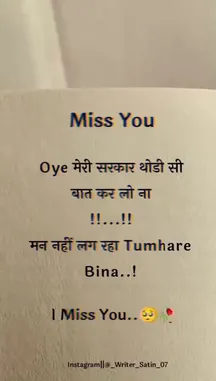 Miss You
Oye मेरी सरकार थोडी सी
बात कर लो ना
!!...!!
मन नहीं लग रहा Tumhare
Bina..!
I Miss You..🥺🥀
Instagram||@_Writer_Satin_07